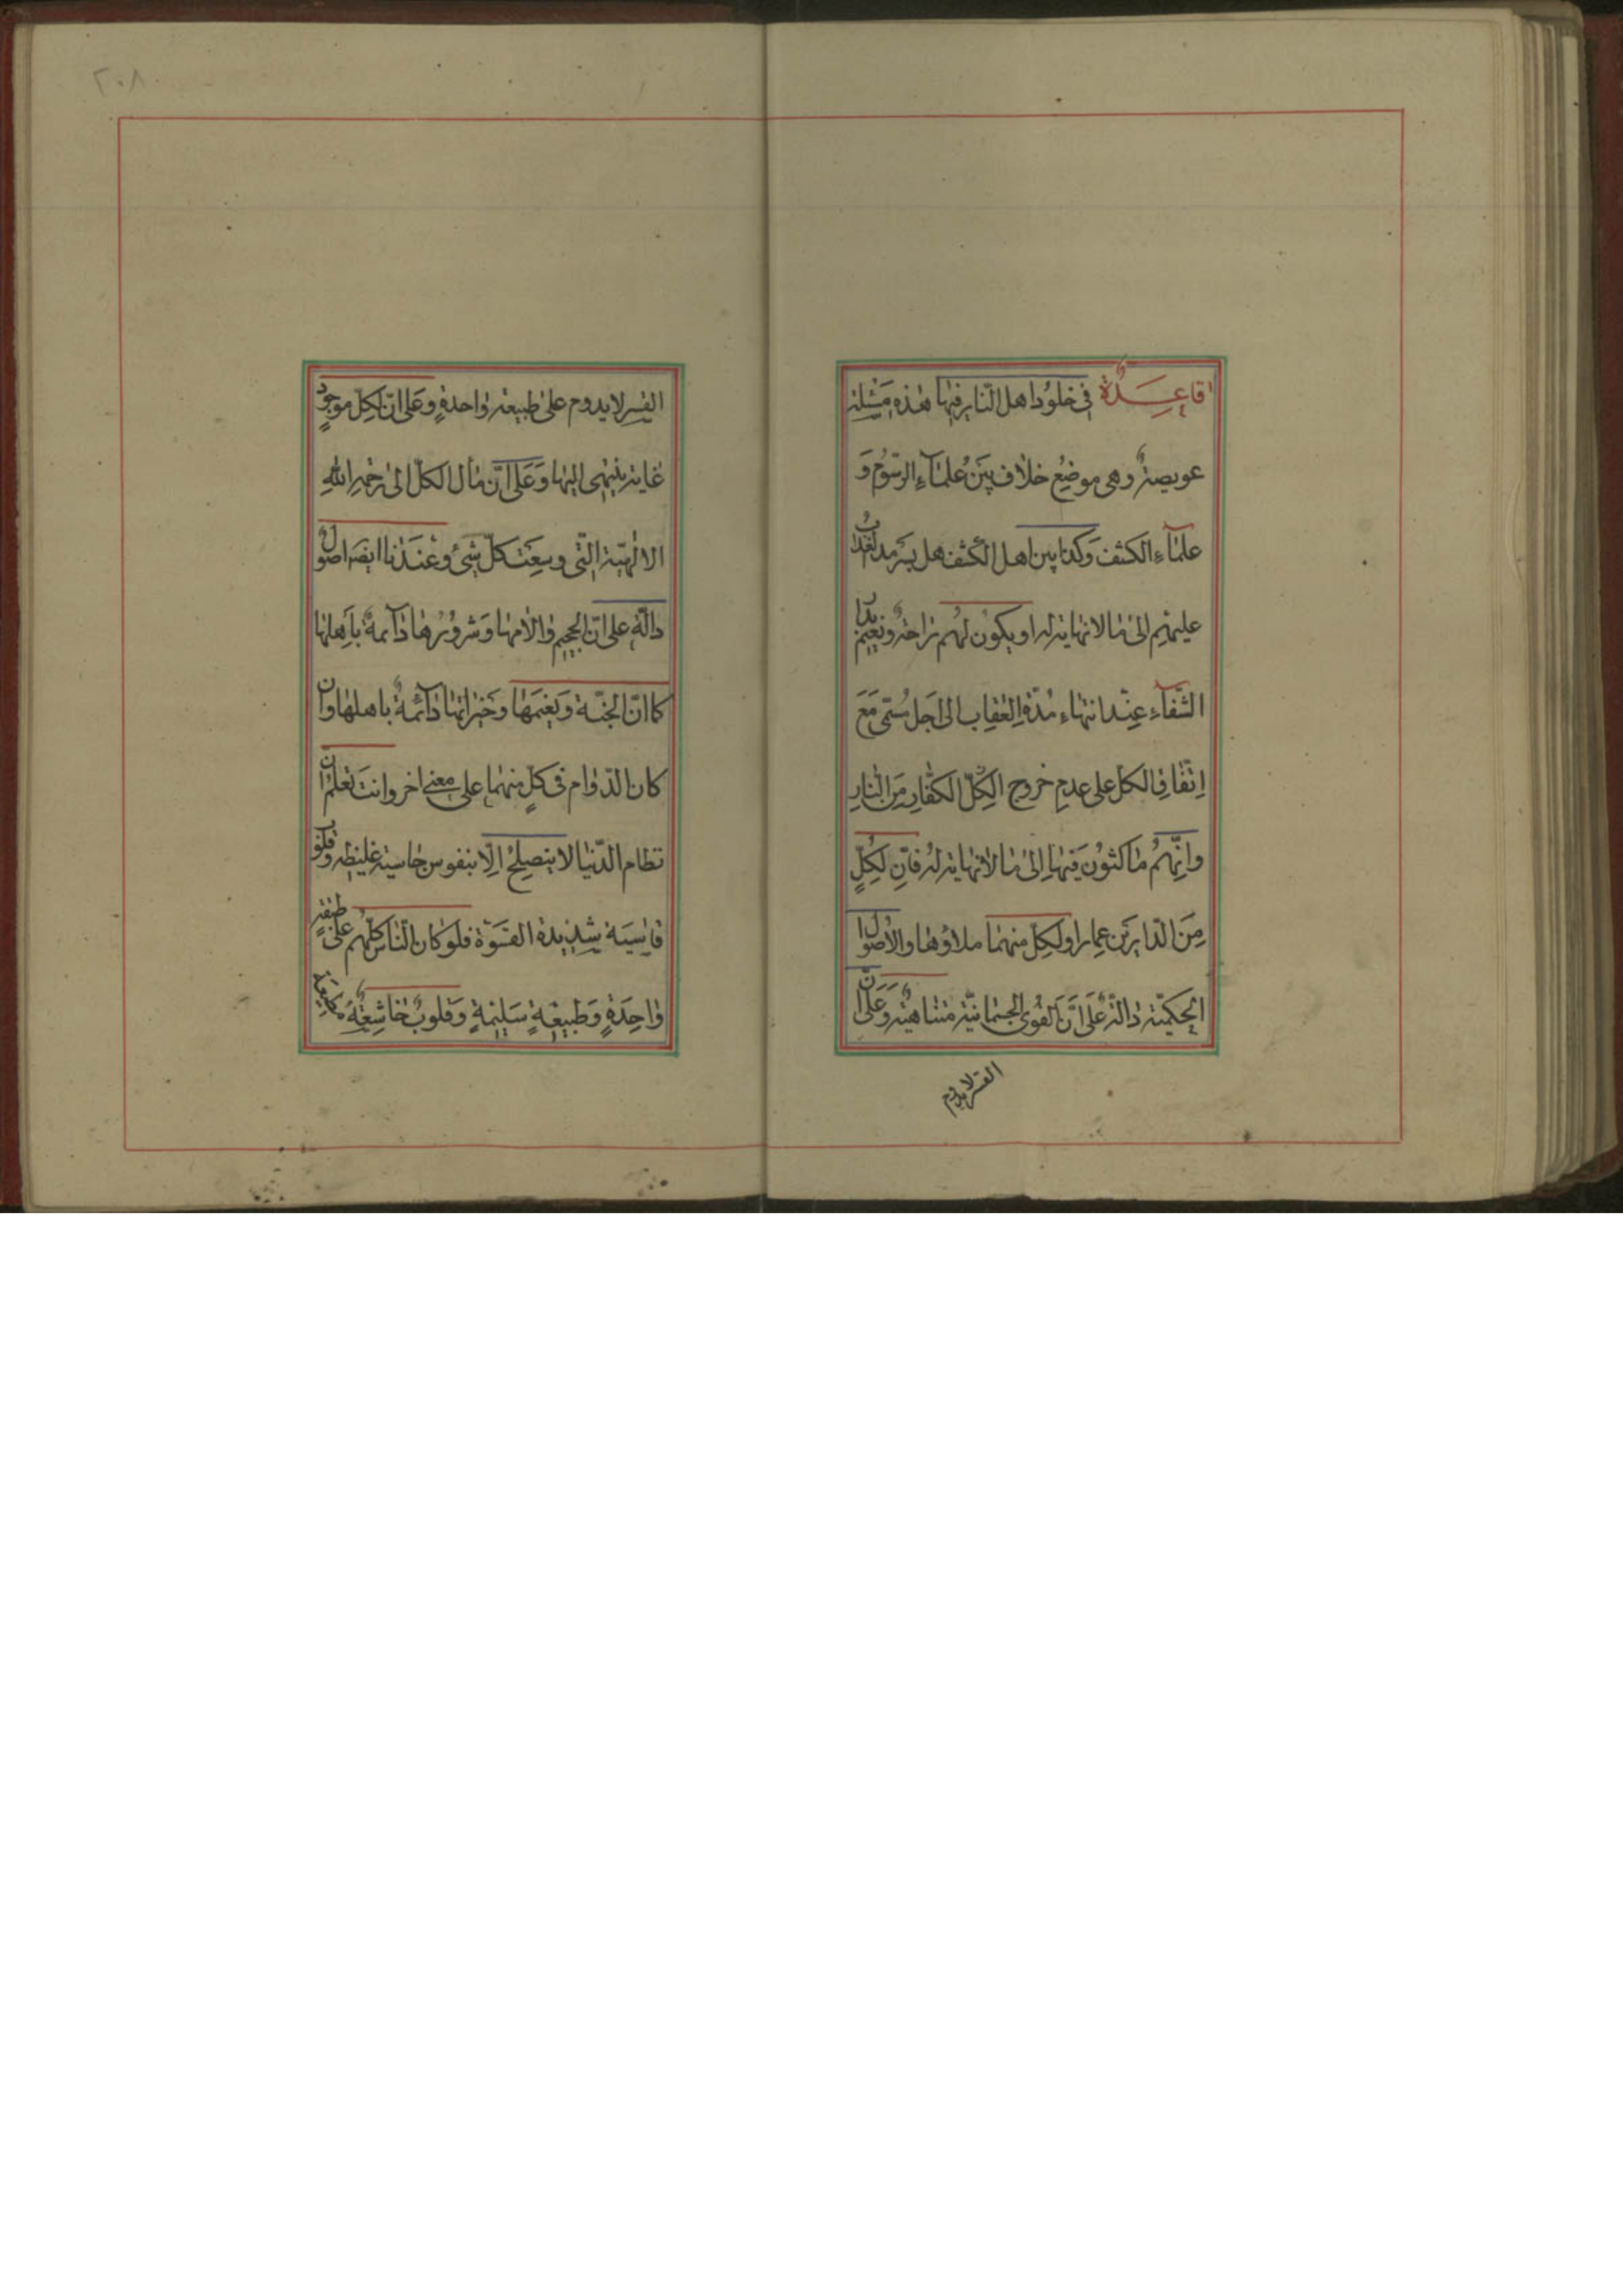 قاعدة في خلود اهل النار فيها هذه مسئلة
عويصة وهى موضع خلاف بين علماء الرسوم و
علماء الكشف وكذا بين اهل الكشف هل يسرمد العذاب
عليهم الى ما لا نهاية له او يكون لهم راحة ونعيم بدار
الشقاء عند انتهاء مدة العقاب الى اجل مسمى مع
اتفاق الكل على عدم خروج الكل الكفار من النار
وانهم ماكثون فيها الى ما لا نهاية له فان لكل
من الدارين عمارا ولكل منهما ملاؤها والاصول
الحكمية دالة على ان القوى الجسمانية متناهية وعلى ان
القسر لا يدوم
٢٠٨
القسر لا يدوم على طبيعة واحدة وعلى ان لكل موجود
غاية ينتهى اليها وعلى ان مآل الكل الى رحمة الله
الالهية التى وسعت كل شئ وعندنا ايضا اصول
دالة على ان الجحيم والامها وشرورها دائمة باهلها
كما ان الجنة ونعيمها وخيراتها دائمة باهلها وان
كان الدوام فى كل منهما على معنى اخر وانت تعلم ان
نظام الدنيا لا ينصلح الا بنفوس جاسية غليظه وقلوب
قاسية شديدة القسوة فلو كان الناس كلهم على طبقة
واحدة وطبيعة سليمة وقلوب خاشعة مطيعة